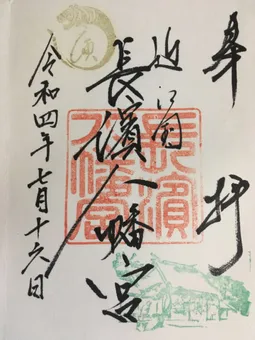 奉拝
近江国
長濱八幡宮
長濱八幡宮
令和四年七月十六日